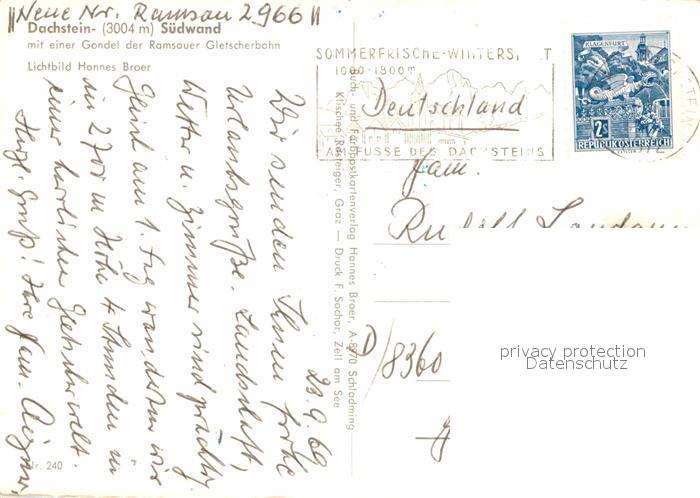 ||Neue Nr. Ramsau 2966||
Dachstein- (3004 m) Südwand
mit einer Gondel der Ramsauer Gletscherbahn
Lichtbild Hannes Broer
23.9.69
Wir senden Ihnen frohe
Urlaubsgrüße. Landschaft,
Wetter u. Zimmer sind prächtig.
Gleich am 1. Tag wanderten wir
in 2700 m Höhe 4 Stunden in
einer herrlichen Gletscherwelt.
Herzl. Gruß! Ihre Fam.
Nr. 240
Buch- und Farbpostkartenverlag Hannes Broer, A-8970 Schladming
Klischee Reisteiger, Graz — Druck F. Sochor, Zell am See
SOMMERFRISCHE-WINTERS T
1000-1800m
AM FUSSE DES DACHSTEINS
KLAGENFURT
2S
REPUBLIK ÖSTERREICH
Deutschland
Fam.
D/8360
privacy protection
Datenschutz